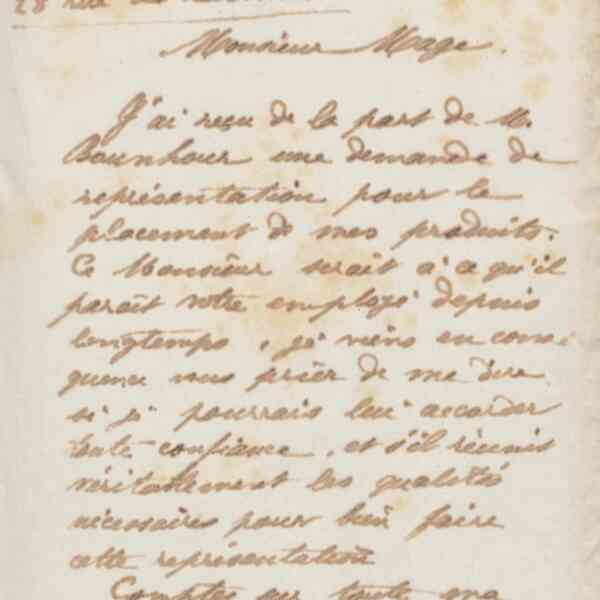 28 rue
Monsieur Mage.
J'ai reçu de la part de M.
Bounhour une demande de
représentation pour le
placement de mes produits.
Ce Monsieur serait à ce qu'il
paraît votre employé depuis
longtemps, je viens en consé-
quence vous prier de me dire
si je pourrais lui accorder
toute confiance, et s'il réunit
véritablement les qualités
nécessaires pour bien faire
cette représentation
Comptez sur toute ma